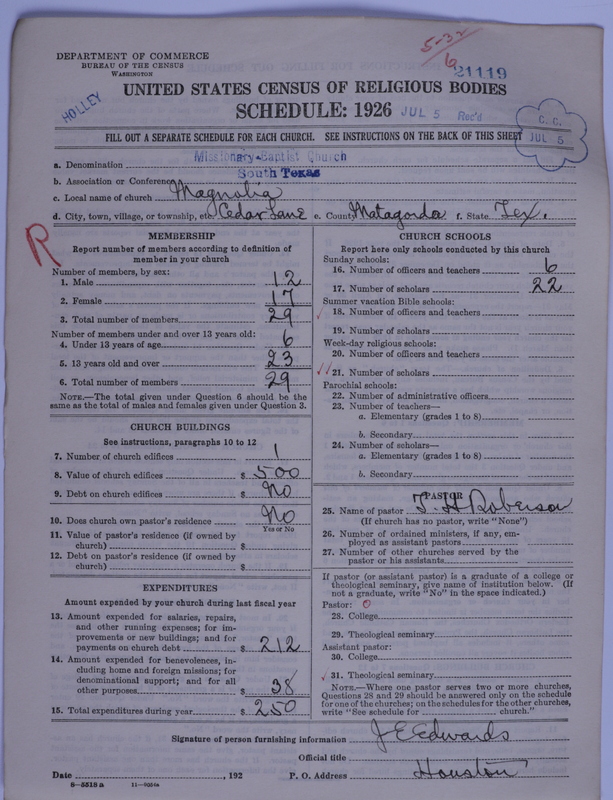 5-32
6
21119
DEPARTMENT OF COMMERCE
BUREAU OF THE CENSUS
WASHINGTON
HOLLEY
UNITED STATES CENSUS OF RELIGIOUS BODIES
SCHEDULE: 1926 JUL 5 Rec'd
C. C.
JUL 5
FILL OUT A SEPARATE SCHEDULE FOR EACH CHURCH. SEE INSTRUCTIONS ON THE BACK OF THIS SHEET
a. Denomination Missionary Baptist Church
b. Association or Conference South Texas
c. Local name of church Magnolia
d. City, town, village, or township, etc. Cedar Lane e. County Matagorda f. State Tex.
R
MEMBERSHIP
Report number of members according to definition of
member in your church
Number of members, by sex:
1. Male 12
2. Female 17
3. Total number of members 29
Number of members under and over 13 years old:
4. Under 13 years of age 6
5. 13 years old and over 23
6. Total number of members 29
NOTE.—The total given under Question 6 should be the
same as the total of males and females given under Question 3.
CHURCH BUILDINGS
See instructions, paragraphs 10 to 12
7. Number of church edifices 1
8. Value of church edifices $ 500
9. Debt on church edifices $ No
10. Does church own pastor's residence No
Yes or No
11. Value of pastor's residence (if owned by
church) $
12. Debt on pastor's residence (if owned by
church) $
EXPENDITURES
Amount expended by your church during last fiscal year
13. Amount expended for salaries, repairs,
and other running expenses; for im-
provements or new buildings; and for
payments on church debt $ 212
14. Amount expended for benevolences, in-
cluding home and foreign missions; for
denominational support; and for all
other purposes $ 38
15. Total expenditures during year $ 250
CHURCH SCHOOLS
Report here only schools conducted by this church
Sunday schools:
16. Number of officers and teachers 6
17. Number of scholars 22
Summer vacation Bible schools:
18. Number of officers and teachers
19. Number of scholars
Week-day religious schools:
20. Number of officers and teachers
21. Number of scholars
Parochial schools:
22. Number of administrative officers
23. Number of teachers—
a. Elementary (grades 1 to 8)
b. Secondary
24. Number of scholars—
a. Elementary (grades 1 to 8)
b. Secondary
PASTOR
25. Name of pastor T. H Roberson
(If church has no pastor, write "None")
26. Number of ordained ministers, if any, em-
ployed as assistant pastors
27. Number of other churches served by the
pastor or his assistants
If pastor (or assistant pastor) is a graduate of a college or
theological seminary, give name of institution below. (If
not a graduate, write "No" in the space indicated.)
Pastor: 0
28. College
29. Theological seminary
Assistant pastor:
30. College
31. Theological seminary
NOTE.—Where one pastor serves two or more churches,
Questions 28 and 29 should be answered only on the schedule
for one of the churches; on the schedules for the other churches,
write "See schedule for church."
Signature of person furnishing information J E Edwards
Official title
Date , 192 P. O. Address Houston
8-5518 a 11-9054a